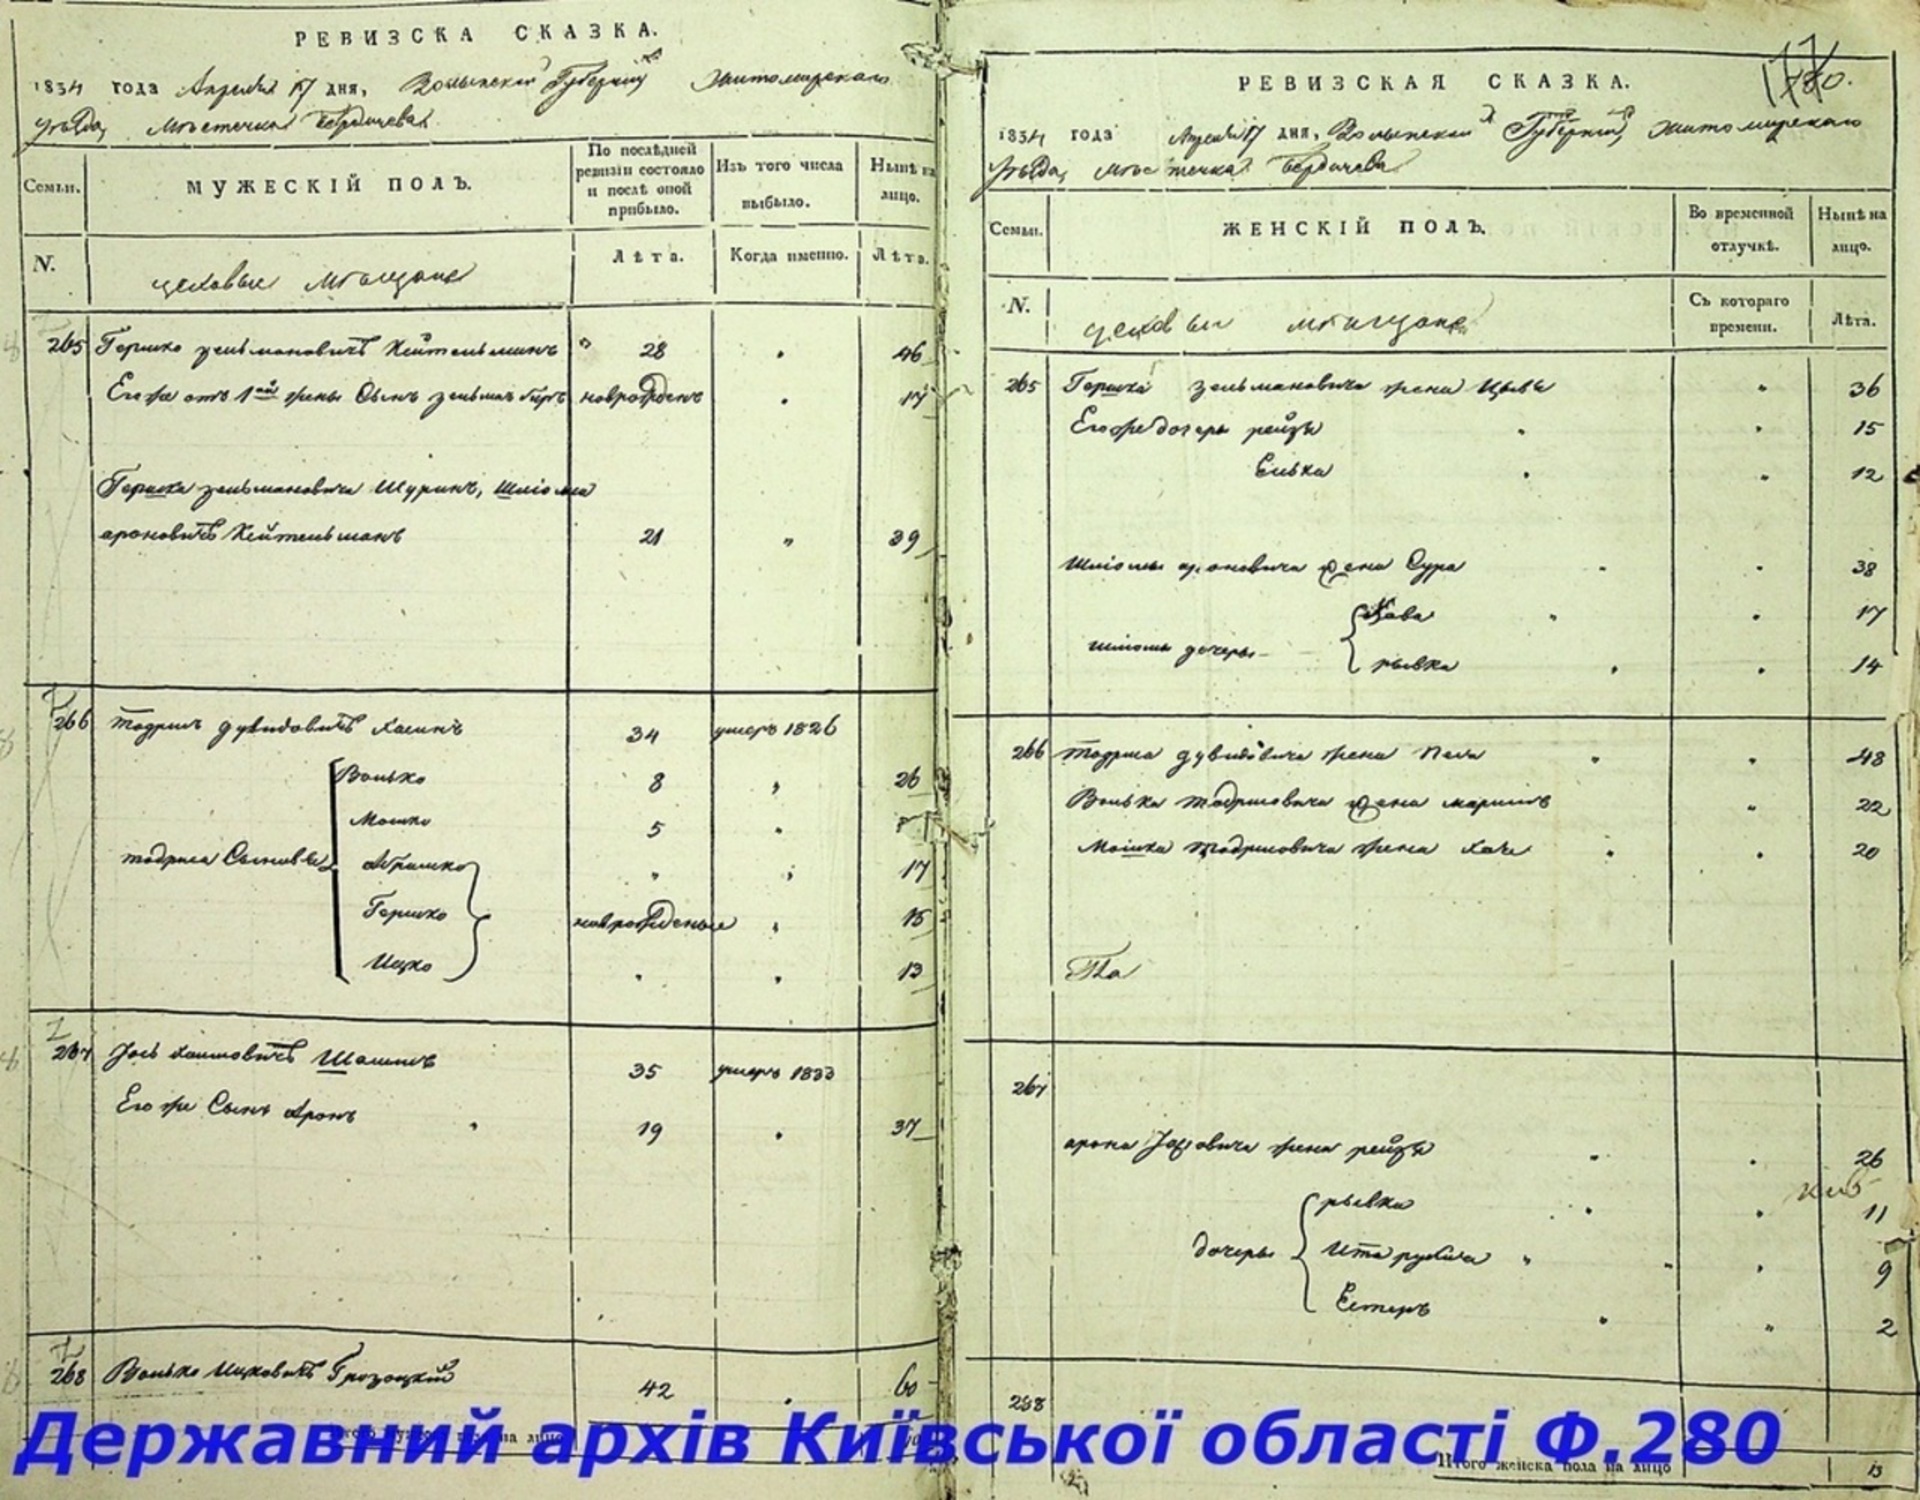 РЕВИЗСКА СКАЗКА.
1834 года Апреля 17 дня, Волынской Губернии Житомирскаго
Уезда, Местечка Бердичева
Семьи. МУЖЕСКІЙ ПОЛЪ. По послѣдней ревизіи состояло и послѣ оной прибыло. Изъ того числа выбыло. Нынѣ на лицо.
N. цеховые мѣщане Лѣта. Когда именно. Лѣта.
265 Гершко Зельмановичъ Кейтельманъ 28 46
Его же отъ 1ой жены Сынъ Зельманъ новрожденъ 17
Гершка Зельмановича Шуринъ, Шліома
Ароновичъ Кейтельманъ 21 39
266 Тодрисъ Дувидовичъ 34 умеръ 1826
Волько 8 26
Мошко 5
Тодриса Сыновья Абрамко 17
Гершко новрожденые 15
Ицко 13
267 Іось Хаимовичъ 35 умеръ 1833
Его же Сынъ Аронъ 19 37
268 Волько Ицковичъ 42 60
на лицо
РЕВИЗСКАЯ СКАЗКА.
1834 года Апреля 17 дня, Волынской Губерніи, Житомирскаго
Уезда, Местечка Бердичева
Семьи. ЖЕНСКІЙ ПОЛЪ. Во временной отлучкѣ. Нынѣ на лицо.
N. цеховые мѣщане Съ котораго времени. Лѣта.
265 Гершка Зельмановича жена Цывья 36
Его же дочери Рейзя 15
Елька 12
Шліомы Ароновича жена Сура 38
Хава 17
Шліомы дочеры Рывка 14
266 Тодриса Дувидовича жена 48
Волька Тодрисовича жена 22
Мошка Тодрисовича жена 20
267
Арона Іосовича жена Рейзя 26
Рывка 11
дочеры Ита 9
Естеръ 2
268
Итого женска пола на лицо 13
Державний архів Київської області Ф.280